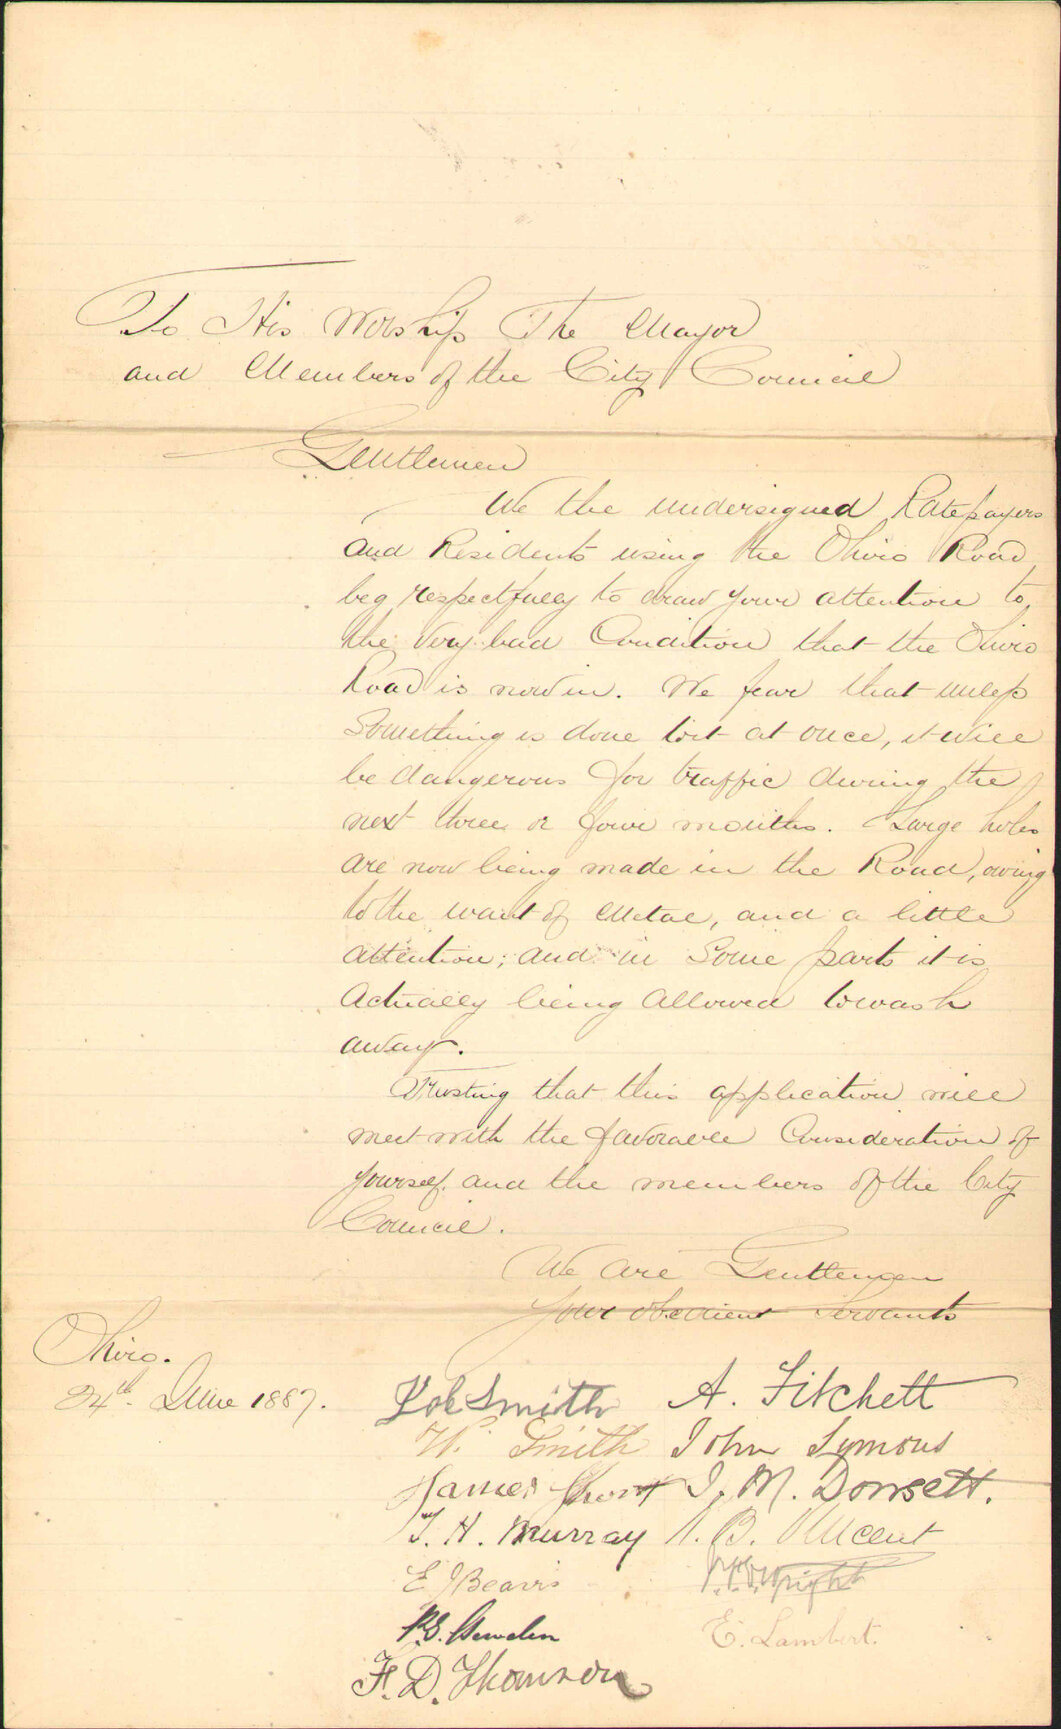 To His Worship The Mayor
and Members of the City Council
Gentlemen
We the undersigned Ratepayers
and Residents using the Ohiro Road,
beg respectfully to draw your attention to
the very bad Condition that the Ohiro
Road is now in. We fear that unless
Something is done to it at once, it will
be dangerous for traffic during the
next three or four months. Large holes
are now being made in the Road, owing
to the want of Metal, and a little
attention; and in Some parts it is
Actually being Allowed to wash
away.
Trusting that this application will
meet with the favorable Consideration of
yourself and the members of the City
Council.
We are Gentlemen
Your obedient Servants
Ohiro.
24th June 1887.
Smith A. Fitchett
W. Smith John Symons
James Short J. M. Dorsett.
T. H. Murray B. Vincent
E J Beavis Wright
E. Lambert.
F. D. Thomson